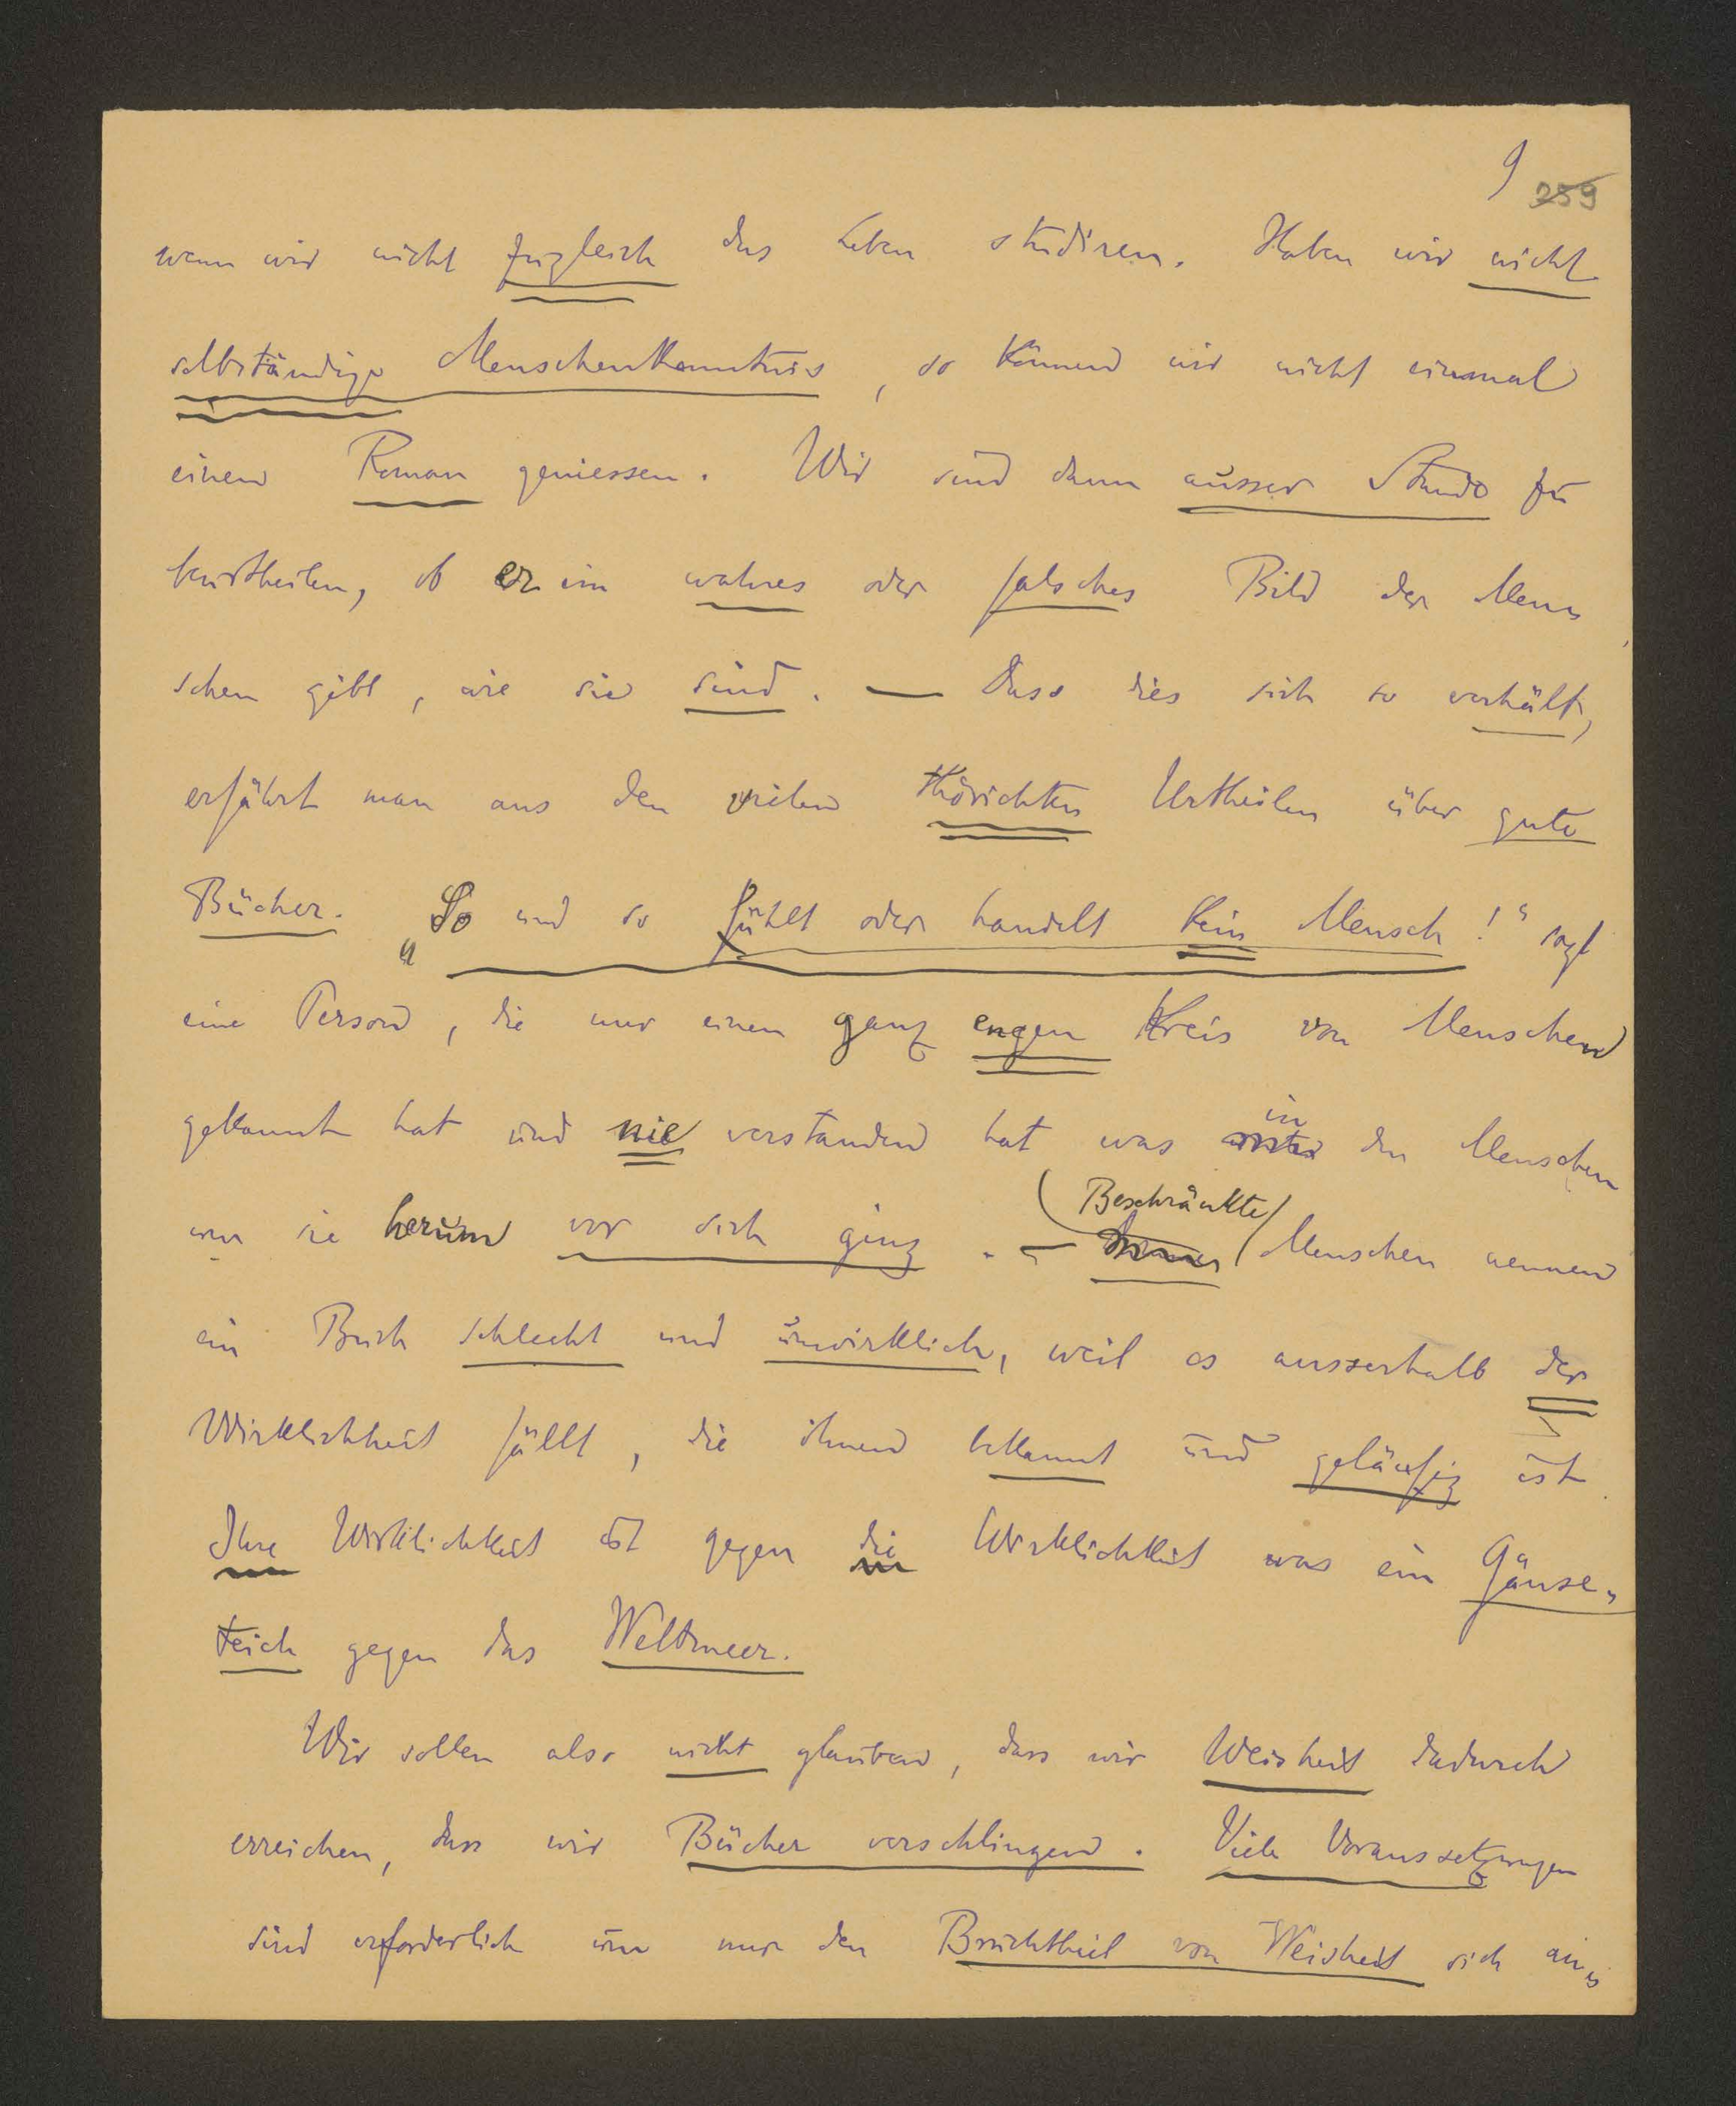 9 259
wenn wir nicht zugleich das Leben studiren. Haben wir nicht
selbständige Menschenkenntnis, so können wir nicht einmal
einen Roman geniessen. Wir sind dann ausser Stande zu
beurtheilen, ob er ein wahres oder falsches Bild der Men-
schen gibt, wie sie sind. — Dass dies sich so verhält,
erfährt man aus den vielen thörichten Urtheilen über gute
Bücher. „So und so fühlt oder handelt kein Mensch!“ sagt
eine Person, die nur einen ganz engen Kreis von Menschen
gekannt hat und nie verstanden hat was in den Menschen
um sie herum vor sich ging. — Beschränkte Menschen nennen
ein Buch schlecht und unwirklich, weil es ausserhalb der
Wirklichkeit fällt, die ihnen bekannt und geläufig ist.
Ihre Wirklichkeit ist gegen die Wirklichkeit was ein Gänse-
teich gegen das Weltmeer.
Wir sollen also nicht glauben, dass wir Weisheit dadurch
erreichen, dass wir Bücher verschlingen. Viele Voraussetzungen
sind erforderlich um nur den Bruchtheil von Weisheit sich an-